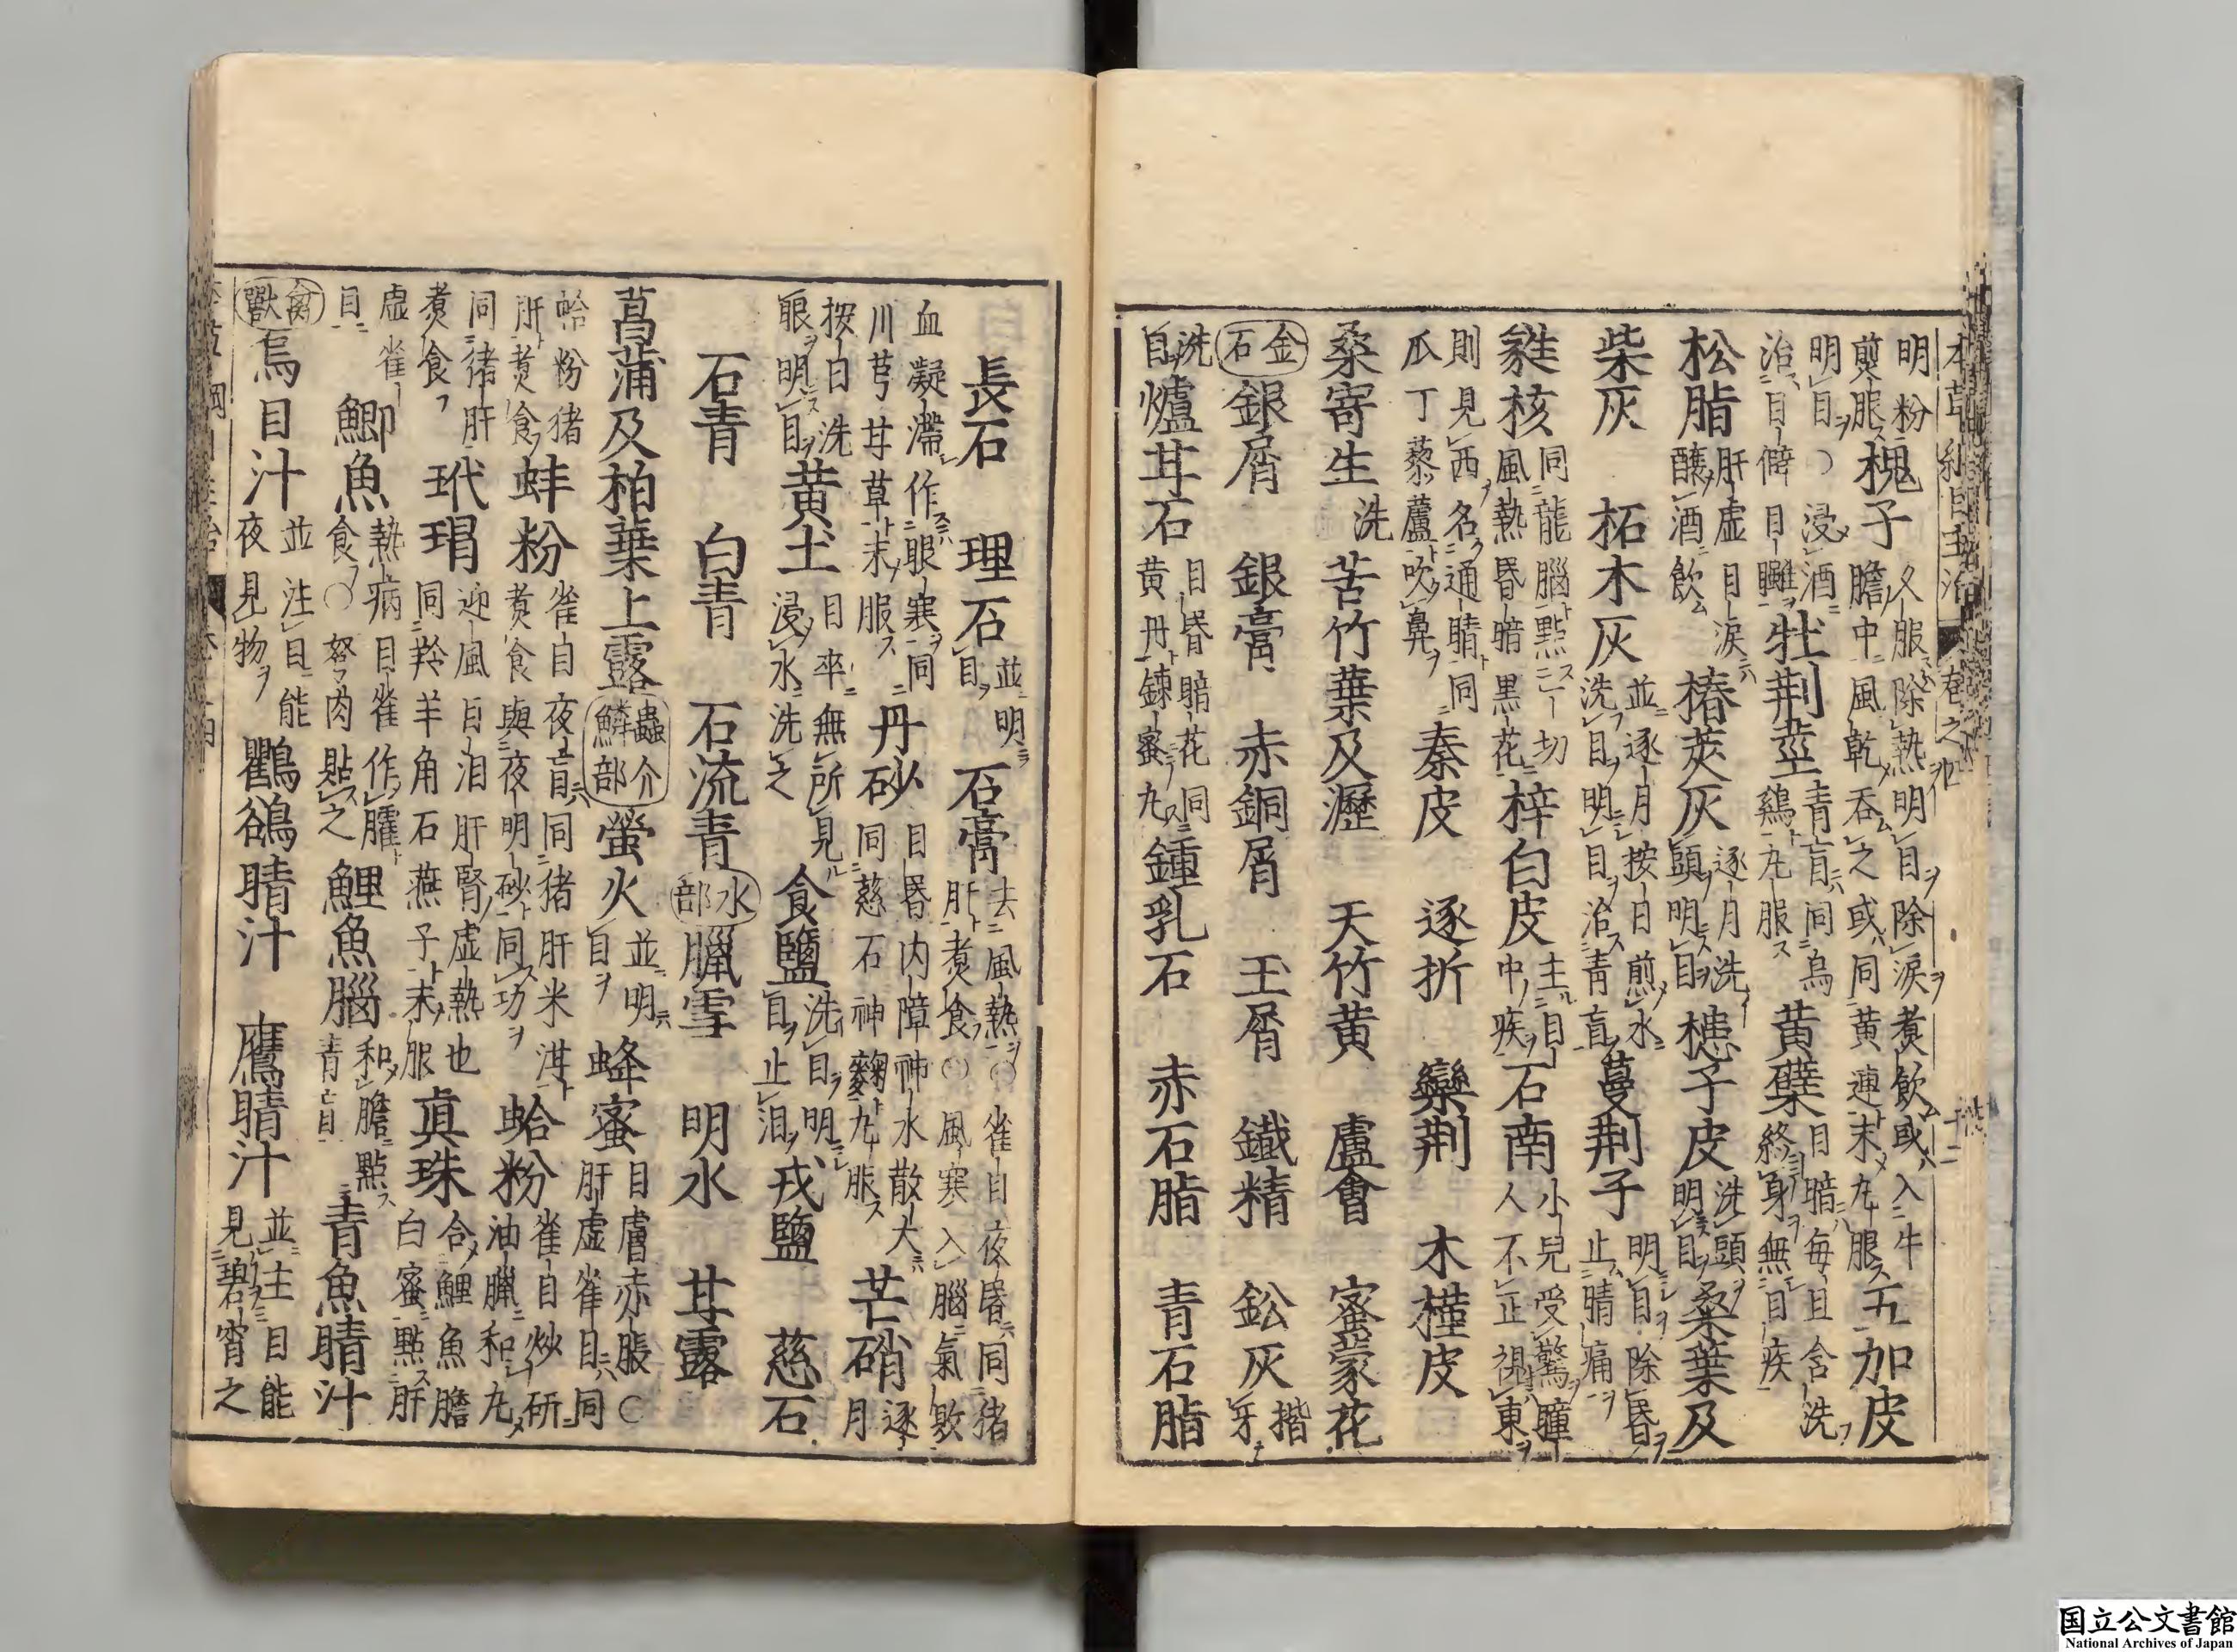 本草綱目主治 卷之四
明粉煎服 槐子 久服除熱明目除淚煮飲或入牛膽中風乾吞之或同黃連末丸服 五加皮
明目○浸酒治目僻目𥉻 牡荊莖 青盲同烏鷄丸服 黃蘗 目暗每旦含洗終身無目疾
松脂 肝虛目淚釀酒飲 椿莢灰 逐月洗頭明目 槵子皮 洗頭明目 桑葉及
柴灰 柘木灰 並逐月按日煎水洗目明目治青盲 蔓荊子 明目除昏止睛痛
蕤核 同龍腦點一切風熱昏暗黑花 梓白皮 主目中疾 石南 小兒受驚瞳人不正視東
則見西名通睛同瓜丁藜蘆吹鼻 秦皮 逐折 欒荊 木槿皮
桑寄生 洗 苦竹葉及瀝 天竹黃 盧會 蜜蒙花
金石 銀屑 銀膏 赤銅屑 玉屑 鐵精 鉛灰 揩牙
洗目 爐甘石 目昏暗花同黃丹鍊蜜丸 鍾乳石 赤石脂 青石脂
長石 理石 並明目 石膏 去風熱○雀目夜昏同猪肝煮食○風寒入腦氣
血凝滯作眼寒同川芎甘草末服 丹砂 目昏内障神水散大同慈石神麴丸服 芒硝 逐月
按日洗眼明目 黃土 目卒無所見浸水洗之 食鹽 洗目明目止淚 戎鹽 慈石
石青 白青 石流青 水部 臘雪 明水 甘露
菖蒲及柏葉上露 蟲介鱗部 螢火 並明目 蜂蜜 目膚赤脹○肝虛雀目同
蛤粉猪肝煮食 蚌粉 雀目夜盲同猪肝米泔煮食與夜明砂同功 蛤粉 雀目炒研油臘和丸
同猪肝煮食 玳瑁 迎風目泪肝腎虛熱也同羚羊角石燕子末服 眞珠 合鯉魚膽白蜜點肝
虛雀目 鯽魚 熱病目雀作臛食○弩肉貼之 鯉魚腦 和膽點青盲 青魚睛汁
禽獸 烏目汁 並注目能夜見物 鸜鵒睛汁 鷹睛汁 並主目能見碧霄之
国立公文書館
National Archives of Japan